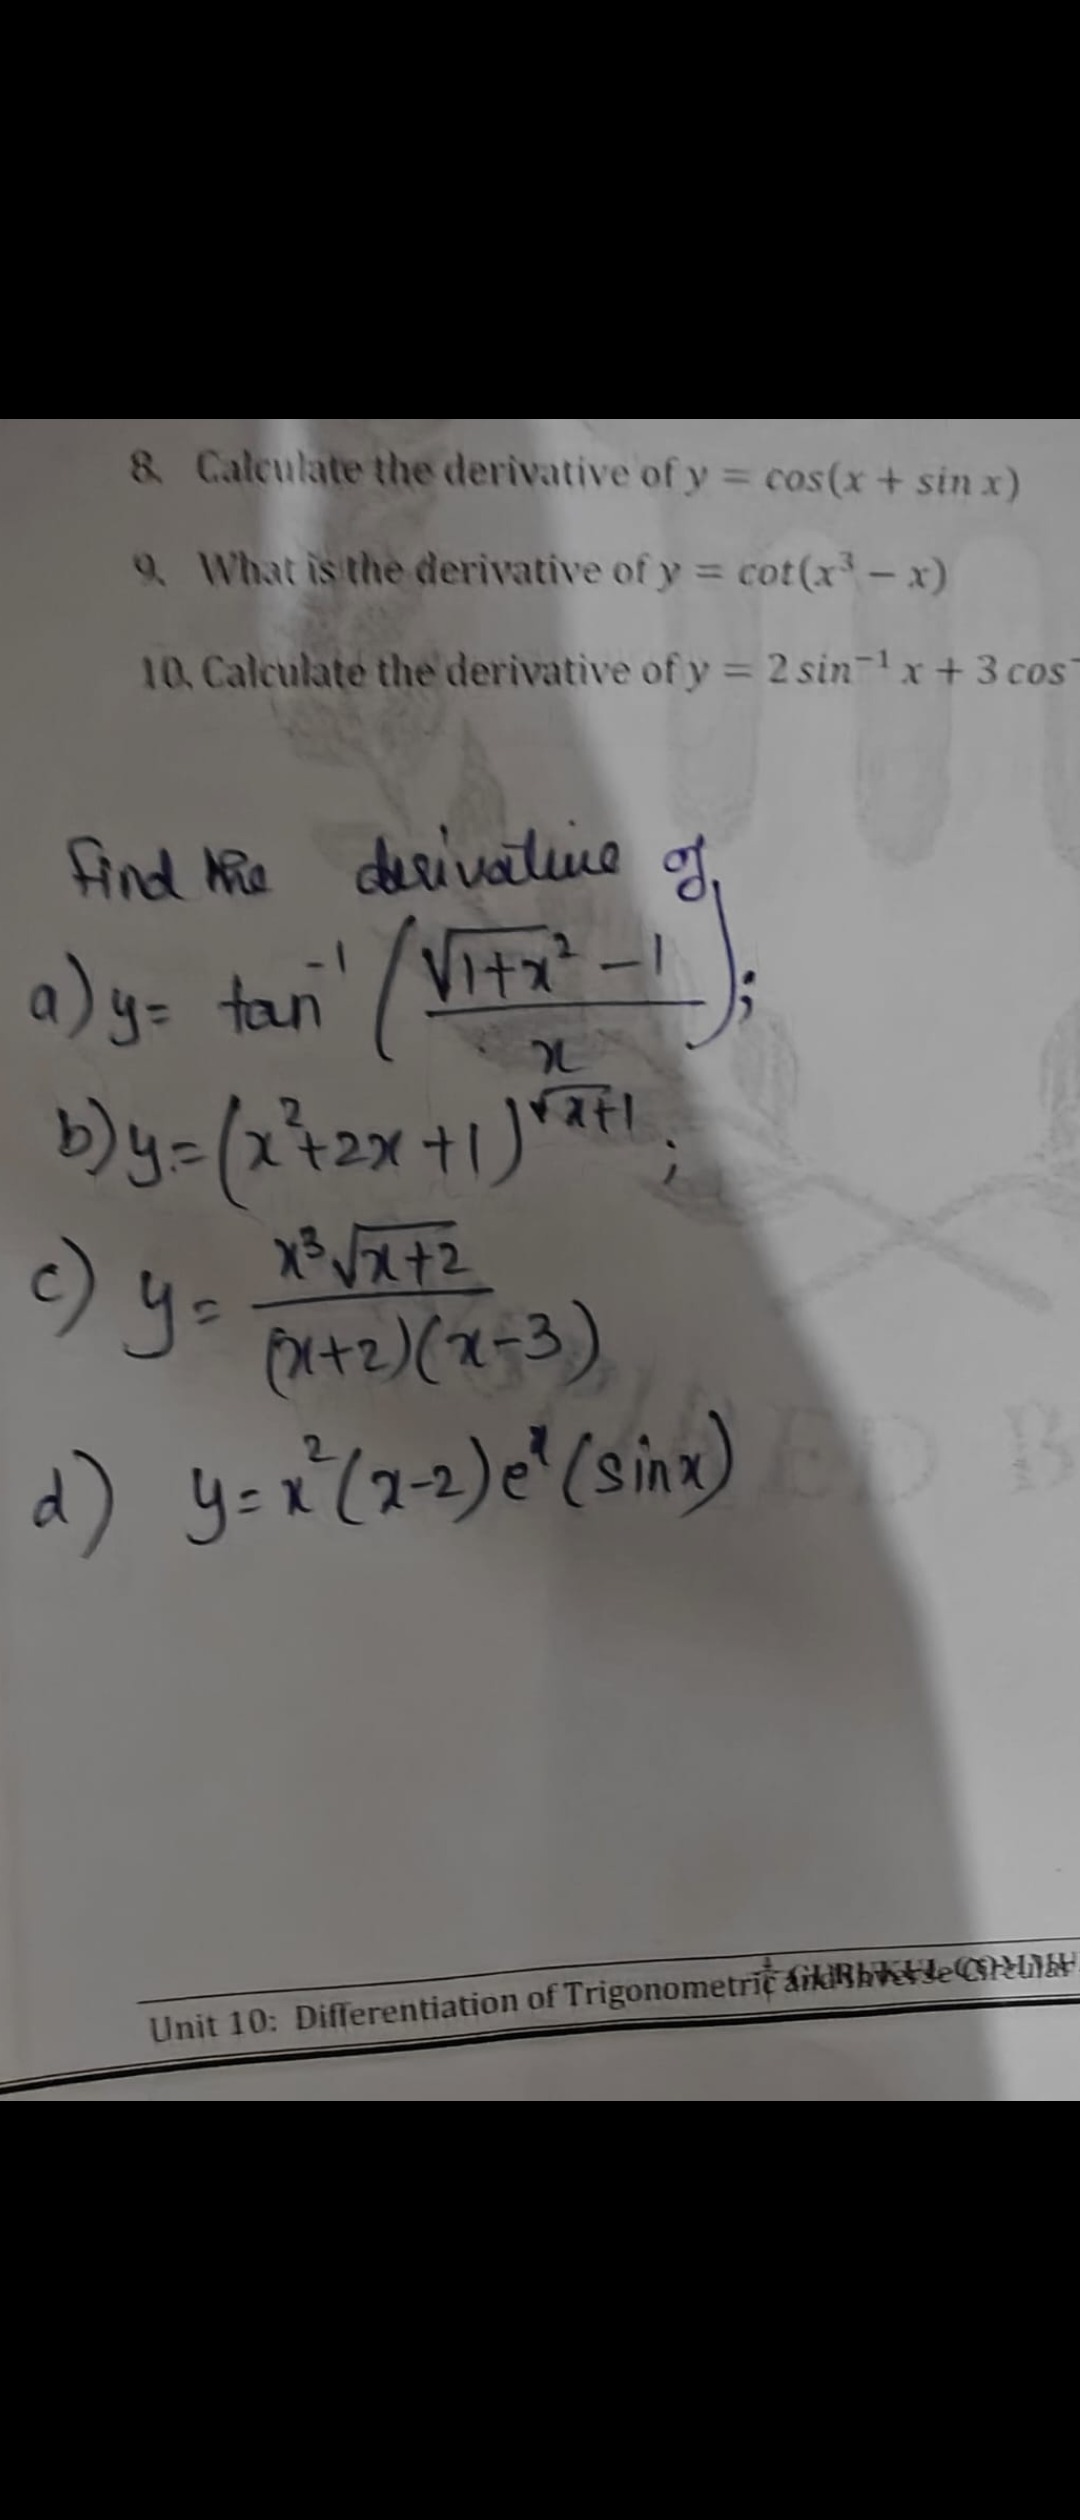 8. Calculate the derivative of y = cos(x + sin x)
9. What is the derivative of y = cot(x³ − x)
10. Calculate the derivative of y = 2 sin⁻¹ x + 3 cos⁻
Find the derivative of
a) y = tan⁻¹ (√1+x² − 1 / x);
b) y = (x² + 2x + 1)^√x+1 ;
c) y = x³√x+2 / (x+2)(x−3)
d) y = x²(x−2)eˣ(sinx)
Unit 10: Differentiation of Trigonometric and Inverse Circular